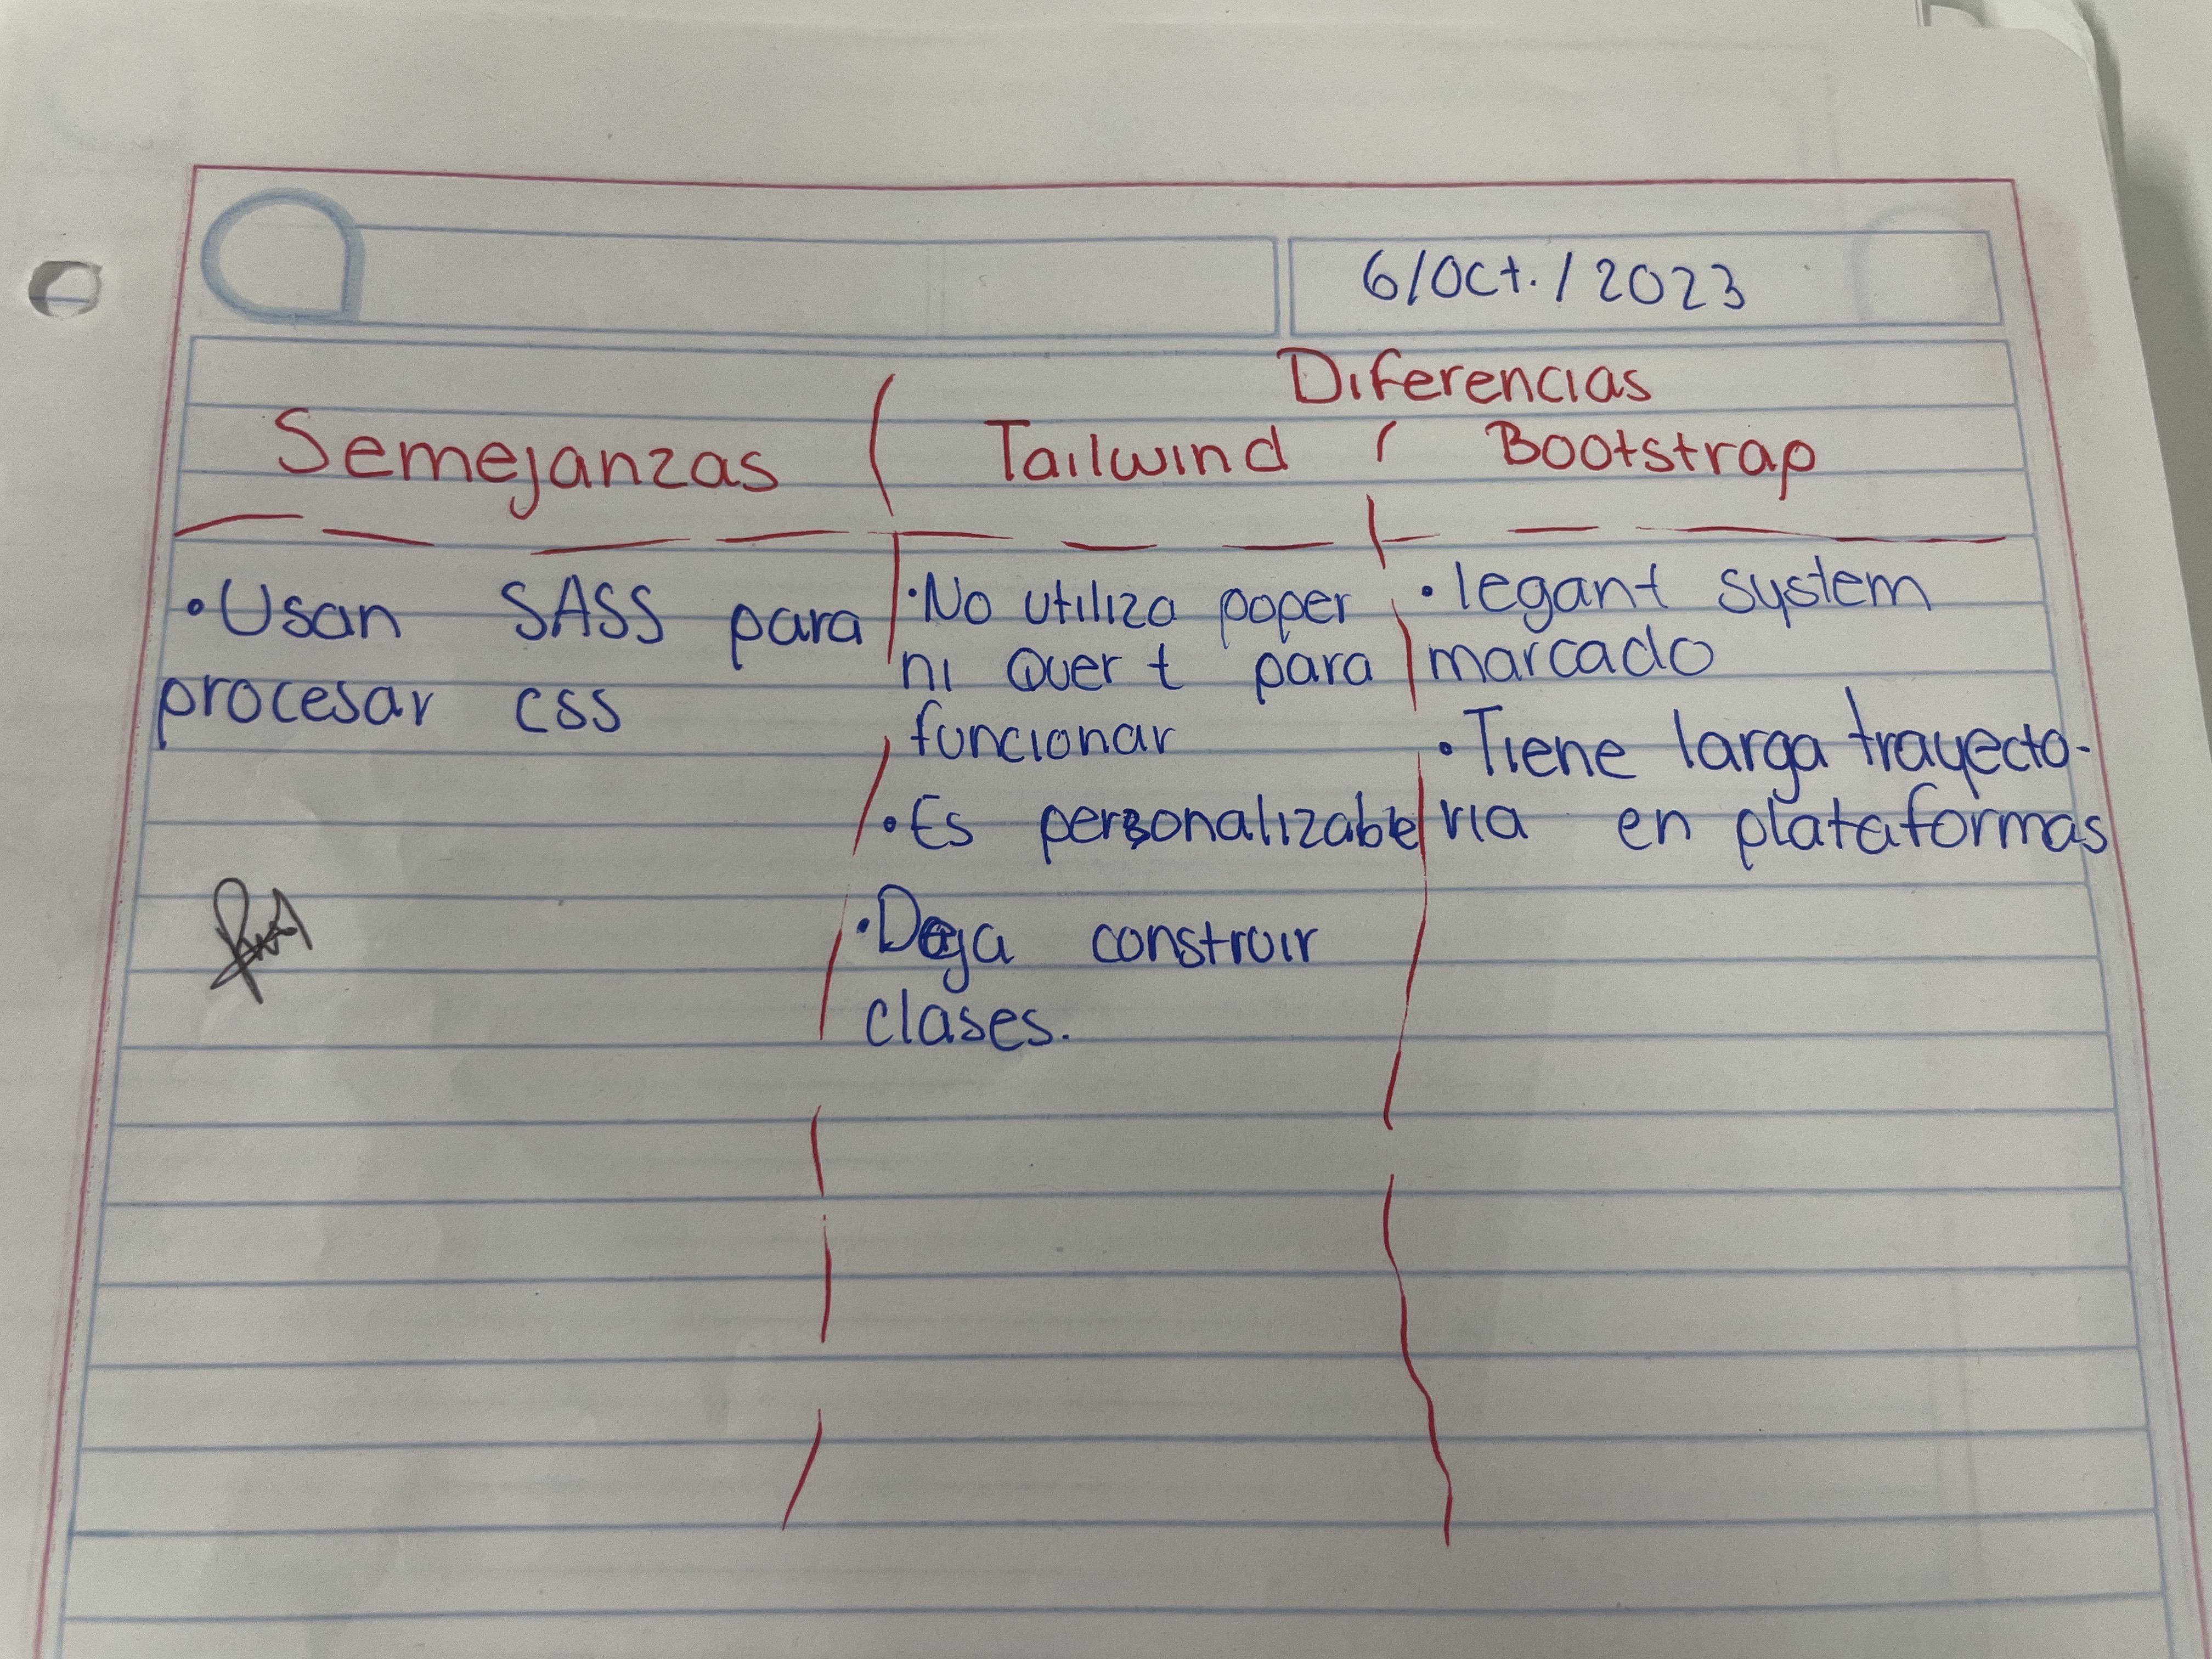 6/Oct./2023
Diferencias
Semejanzas Tailwind Bootstrap
• Usan SASS para
procesar css
• No utiliza poper
ni Quer t para
funcionar
• Es personalizable
• Deja construir
clases.
• legant system
marcado
• Tiene larga trayecto-
ria en plataformas